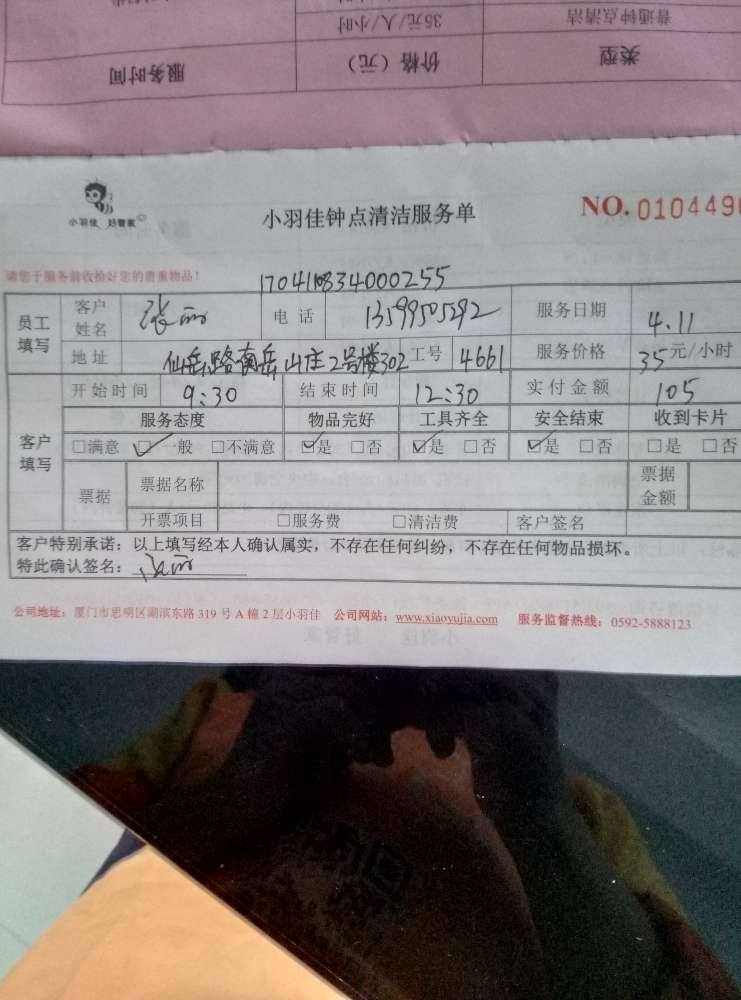 类型 价格（元） 服务时间
普通钟点清洁 35元/人/小时
小羽佳 好管家
小羽佳钟点清洁服务单
NO. 010449
请您于服务前收拾好您的贵重物品！
170410834000255
员工填写 客户姓名 张丽 电话 13599505292 服务日期 4.11
地址 仙岳路南岳山庄2号楼302 工号 4661 服务价格 35元/小时
客户填写 开始时间 9:30 结束时间 12:30 实付金额 105
服务态度 物品完好 工具齐全 安全结束 收到卡片
□满意 ☑一般 □不满意 ☑是 □否 ☑是 □否 ☑是 □否 □是 □否
票据 票据名称 票据金额
开票项目 □服务费 □清洁费 客户签名
客户特别承诺：以上填写经本人确认属实，不存在任何纠纷，不存在任何物品损坏。
特此确认签名：张丽
公司地址：厦门市思明区湖滨东路 319 号 A 幢 2 层小羽佳 公司网站：www.xiaoyujia.com 服务监督热线：0592-5888123